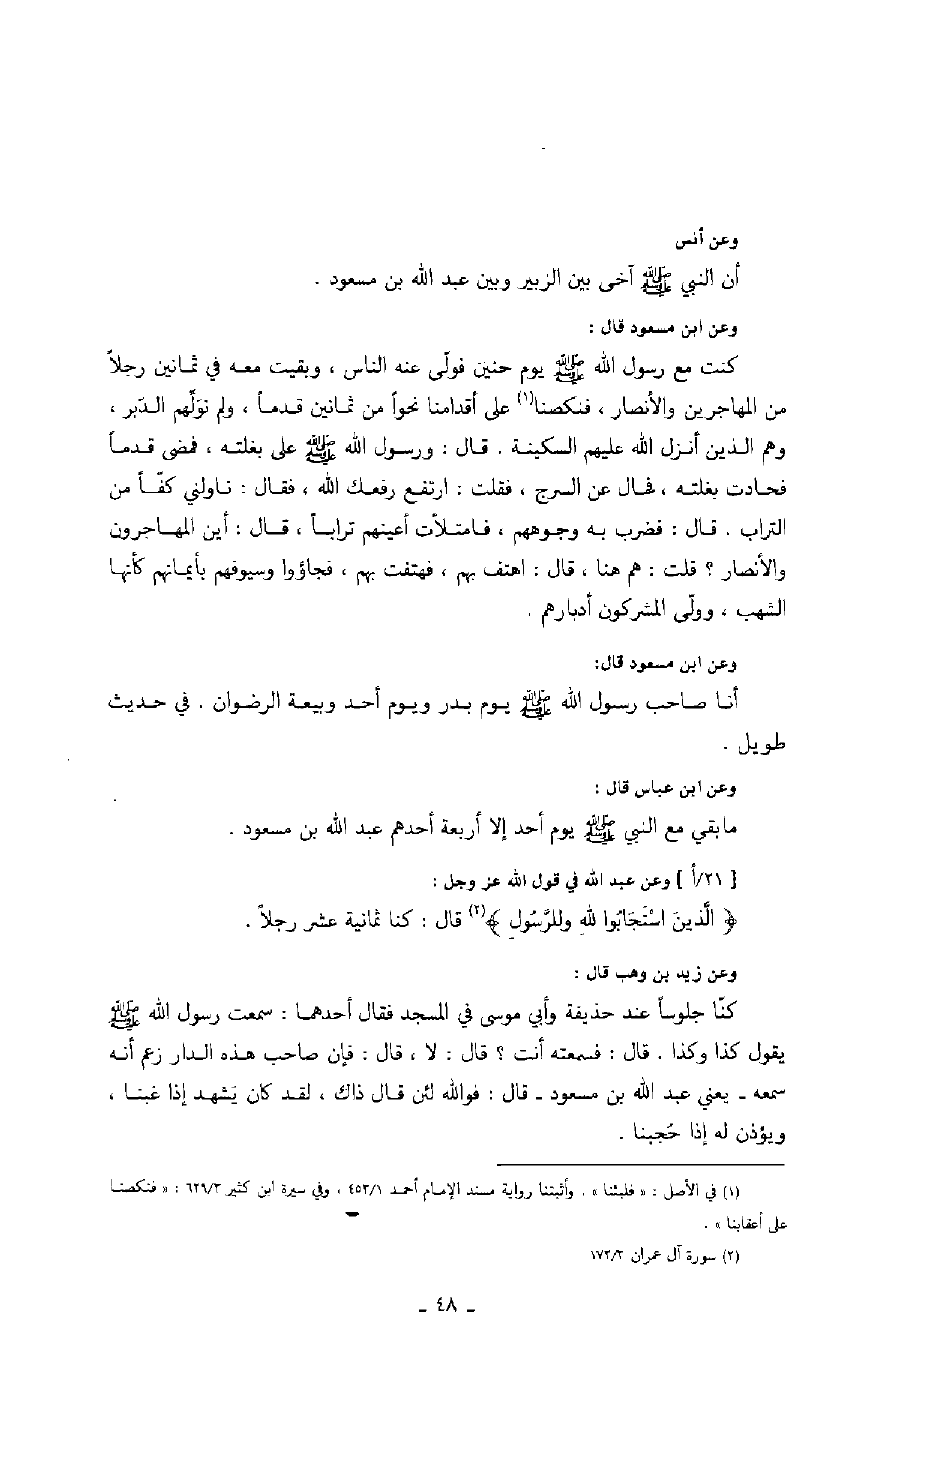 وعن أنس
أن النبي ﷺ آخى بين الزبير وبين عبد الله بن مسعود .
وعن ابن مسعود قال :
كنت مع رسول الله ﷺ يوم حنين فولّى عنه الناس ، وبقيت معه في ثمانين رجلاً
من المهاجرين والأنصار ، فنكصنا(١) على أقدامنا نحواً من ثمانين قدماً ، ولم نولّهم الدّبر ،
وهم الذين أنزل الله عليهم السكينة . قال : ورسول الله ﷺ على بغلته ، فمضى قدماً
فحادت بغلته ، فمال عن السرج ، فقلت : ارتفع رفعك الله ، فقال : ناولني كفّاً من
التراب . قال : فضرب به وجوههم ، فامتلأت أعينهم تراباً ، قال : أين المهاجرون
والأنصار ؟ قلت : هم هنا ، قال : اهتف بهم ، فهتفت بهم ، فجاؤوا وسيوفهم بأيمانهم كأنها
الشهب ، وولّى المشركون أدبارهم .
وعن ابن مسعود قال:
أنا صاحب رسول الله ﷺ يوم بدر ويوم أحد وبيعة الرضوان . في حديث
طويل .
وعن ابن عباس قال :
مابقي مع النبي ﷺ يوم أحد إلا أربعة أحدهم عبد الله بن مسعود .
[ ٢١/أ ] وعن عبد الله في قول الله عز وجل :
﴿ الَّذينَ اسْتَجَابُوا للهِ وللرَّسُولِ ﴾(٢) قال : كنا ثمانية عشر رجلاً .
وعن زيد بن وهب قال :
كنّا جلوساً عند حذيفة وأبي موسى في المسجد فقال أحدهما : سمعت رسول الله ﷺ
يقول كذا وكذا . قال : فسمعته أنت ؟ قال : لا ، قال : فإن صاحب هذه الدار زعم أنه
سمعه ـ يعني عبد الله بن مسعود ـ قال : فوالله لئن قال ذاك ، لقد كان يَشهد إذا غبنا ،
ويؤذن له إذا حُجبنا .
(١) في الأصل : « فلبثنا » . وأثبتنا رواية مسند الإمام أحمد ٤٥٣/١ ، وفي سيرة ابن كثير ٦٢٩/٣ : « فنكصنا
على أعقابنا » .
(٢) سورة آل عمران ١٧٢/٣
ـ ٤٨ ـ